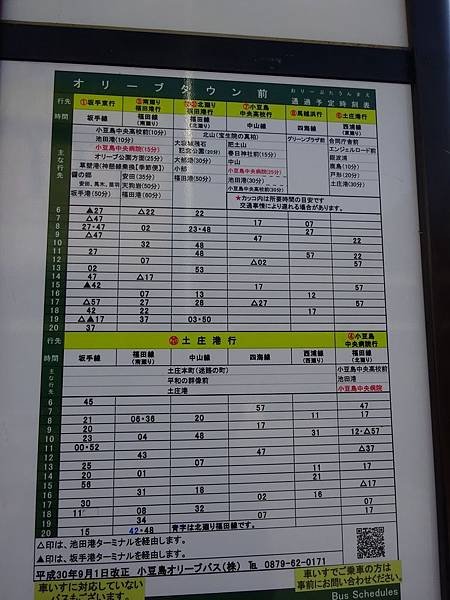 オリーブタウン前
おりーぶたうんまえ
通過予定時刻表
行先 ①坂手東行 南廻り福田港行 北廻り福田港行 ⑦小豆島中央高校行 ⑧馬越浜行 土庄港行
時間 坂手線 福田線(南廻り) 福田線(北廻り) 中山線 四海線 西浦線(東廻り)
主な行先
小豆島中央高校前(10分)
池田港(10分)
小豆島中央病院(15分)
オリーブ公園方面(25分)
草壁港(神懸線乗換【季節便】)
醤の郷 安田(35分)
安田、馬木、苗羽 天狗岩(50分)
坂手港(50分) 福田港(60分)
北山(宝生院の真柏)
大坂城残石記念公園(20分)
大部港(30分)
小部
福田港(50分)
肥土山
春日神社前(15分)
中山
小豆島中央病院(25分)
池田港(30分)
小豆島中央高校前(30分)
グリーンプラザ前
合同庁舎前
エンジェルロード前
銀波浦
鹿島(10分)
戸形(20分)
土庄港(30分)
★カッコ内は所要時間の目安です
交通事情により遅れる場合があります。
6 ▲27 △22 22
7 △47 17 07
8 27・47 02 23・48 27
9 △47 47 22
10 32 48
11 27 48 57 22
12 07 △02 57
13 02 53
14 47 △17
15 ▲42 17 57
16 07 13 12
17 △57 27 28 △27 57
18 42 22 17
19 △▲17 37 03・50
20 37
行先 土庄港行 ④小豆島中央病院行
時間 坂手線 福田線(南廻り) 中山線 四海線 西浦線(西廻り) 福田線(北廻り)
主な行先
土庄本町(迷路の町)
平和の群像前
土庄港
小豆島中央高校前
池田港
小豆島中央病院
6 45
7 57 47
8 21 06・36 20 11 17
9 20 17
10 23 04 48 31 12・△57
11 00・52 47
12 43 △37
13 25 07 11
14 20 01 21
15 56 △17
16 31 18 16
17 30 02 07
18 11 08 32 17
19 34
20 15 42・48 青字は北廻り福田線です。
△印は、池田港ターミナルを経由します。
▲印は、坂手港ターミナルを経由します。
平成30年9月1日改正 小豆島オリーブバス(株) ℡ 0879-62-0171
車いすに対応していない
バスもございます。
車いすでご乗車の方は
事前にお問い合わせください。
Bus Schedules